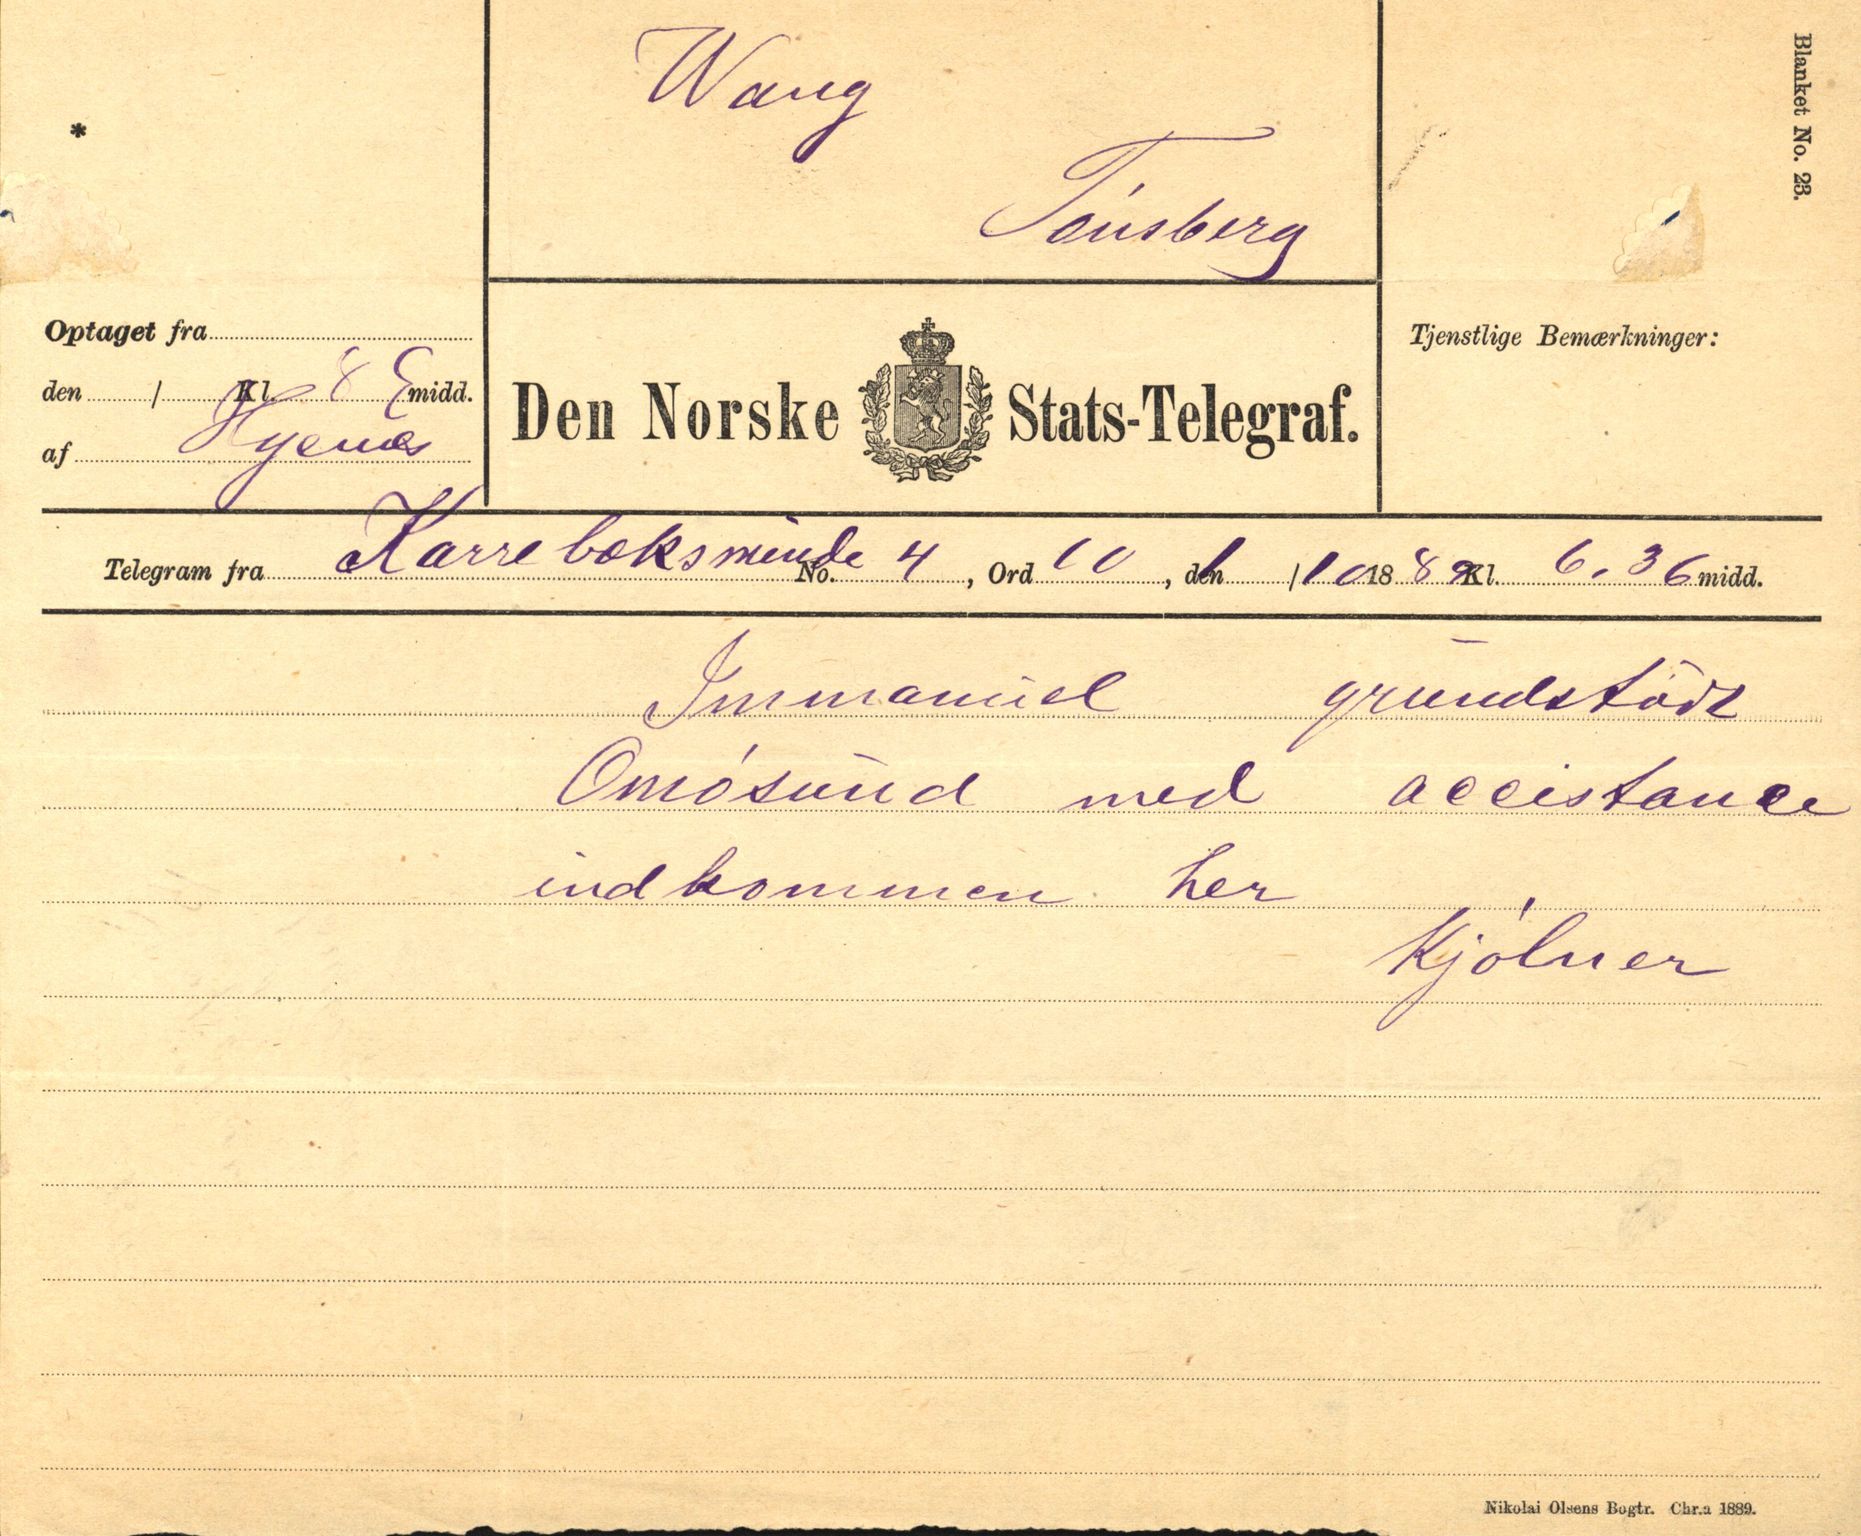 Blanket No. 23.
*
Wang
Tönsberg
Optaget fra
den / Kl. 8 E midd.
af Hyenæs
Den Norske Stats-Telegraf.
Tjenstlige Bemærkninger:
Telegram fra Karrebæksminde No. 4, Ord 10, den 1/10 1889 Kl. 6.36 midd.
Immanuel grundstödt
Omösund med accistance
indkommen her
Kjölner
Nikolai Olsens Bogtr. Chr.a 1889.